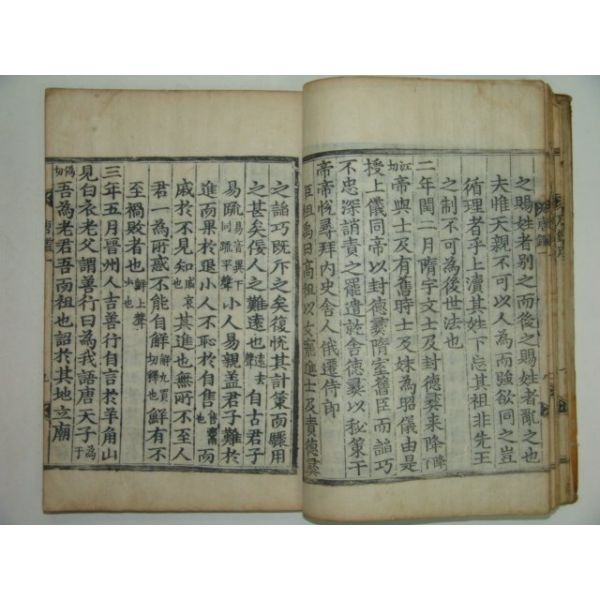 之賜姓者別之而後之賜姓者亂之也
夫唯天親不可以人為而強欲同之豈
循理者乎上瀆其姓下忘其祖非先王
之制不可為後世法也
二年閏二月隋宇文士及封德彝來降
帝與士及有舊時士及妹為昭儀由是
授上儀同帝以封德彝隋室舊臣而諂巧
不忠深誚責之罷遣就舍德彝以秘策干
帝帝悅尋拜內史舍人俄遷侍郎
臣祖禹曰高祖以
進士及責德彝
之諂巧既斥之矣復悅其計策而驟用
之甚矣佞人之難遠也遠去聲自古君子
易疏易音異下同疏平聲小人易親蓋君子難於
進而果於退小人不恥於自售售而
戚於不見知也其進也無所不至人
君一為所惑不能自解鮮有不
至禍敗者也鮮上聲少也
三年五月晉州人吉善行自言於羊角山
見白衣老父謂善行曰為我語唐天子
吾為老君吾而祖也詔於其地立廟
唐鑑一